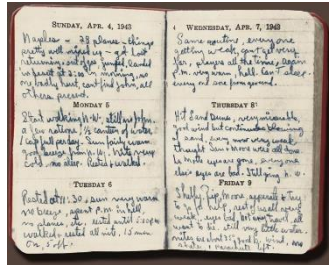 SUNDAY, APR. 4, 1943
Naples - 28 planes - things
pretty well mixed up - got lost
returning, out of gas, jumped, landed
in desert at 2:00 in morning, no
one badly hurt, cant find John, all
others present.
MONDAY 5
Start walking N.W., still no John.
a few rations, 1/2 canteen of water
1 cap full per day. Sun fairly warm
good breeze from N.W. Nite very
cold, no sleep. Rested & walked.
TUESDAY 6
Rested at 11:30, sun very warm
no breeze, spent P.M. in hell,
no planes, etc. rested until 5:00 p.m.
walked & rested all nite, 15 min
on, 5 off.
WEDNESDAY, APR. 7, 1943
Same routine, everyone
getting weak, cant get very
far, prayers all the time, again
p.m. very warm, hell. Can't sleep.
every one sore from ground.
THURSDAY 8
Hit Sand Dunes, very miserable,
good wind but continuous blowing
of sand, every now very weak,
thought Sam & Moore were all done.
La Motte eyes are gone, everyone
else's eyes are bad. Still going N.W.
FRIDAY 9
Shelly, Rip, Moore separate & try
to go for help, rest of us all very
weak, eyes bad, not any travel, all
want to die. still very little water.
nites are about 35° good n. wind, no
shelter, 1 parachute left.